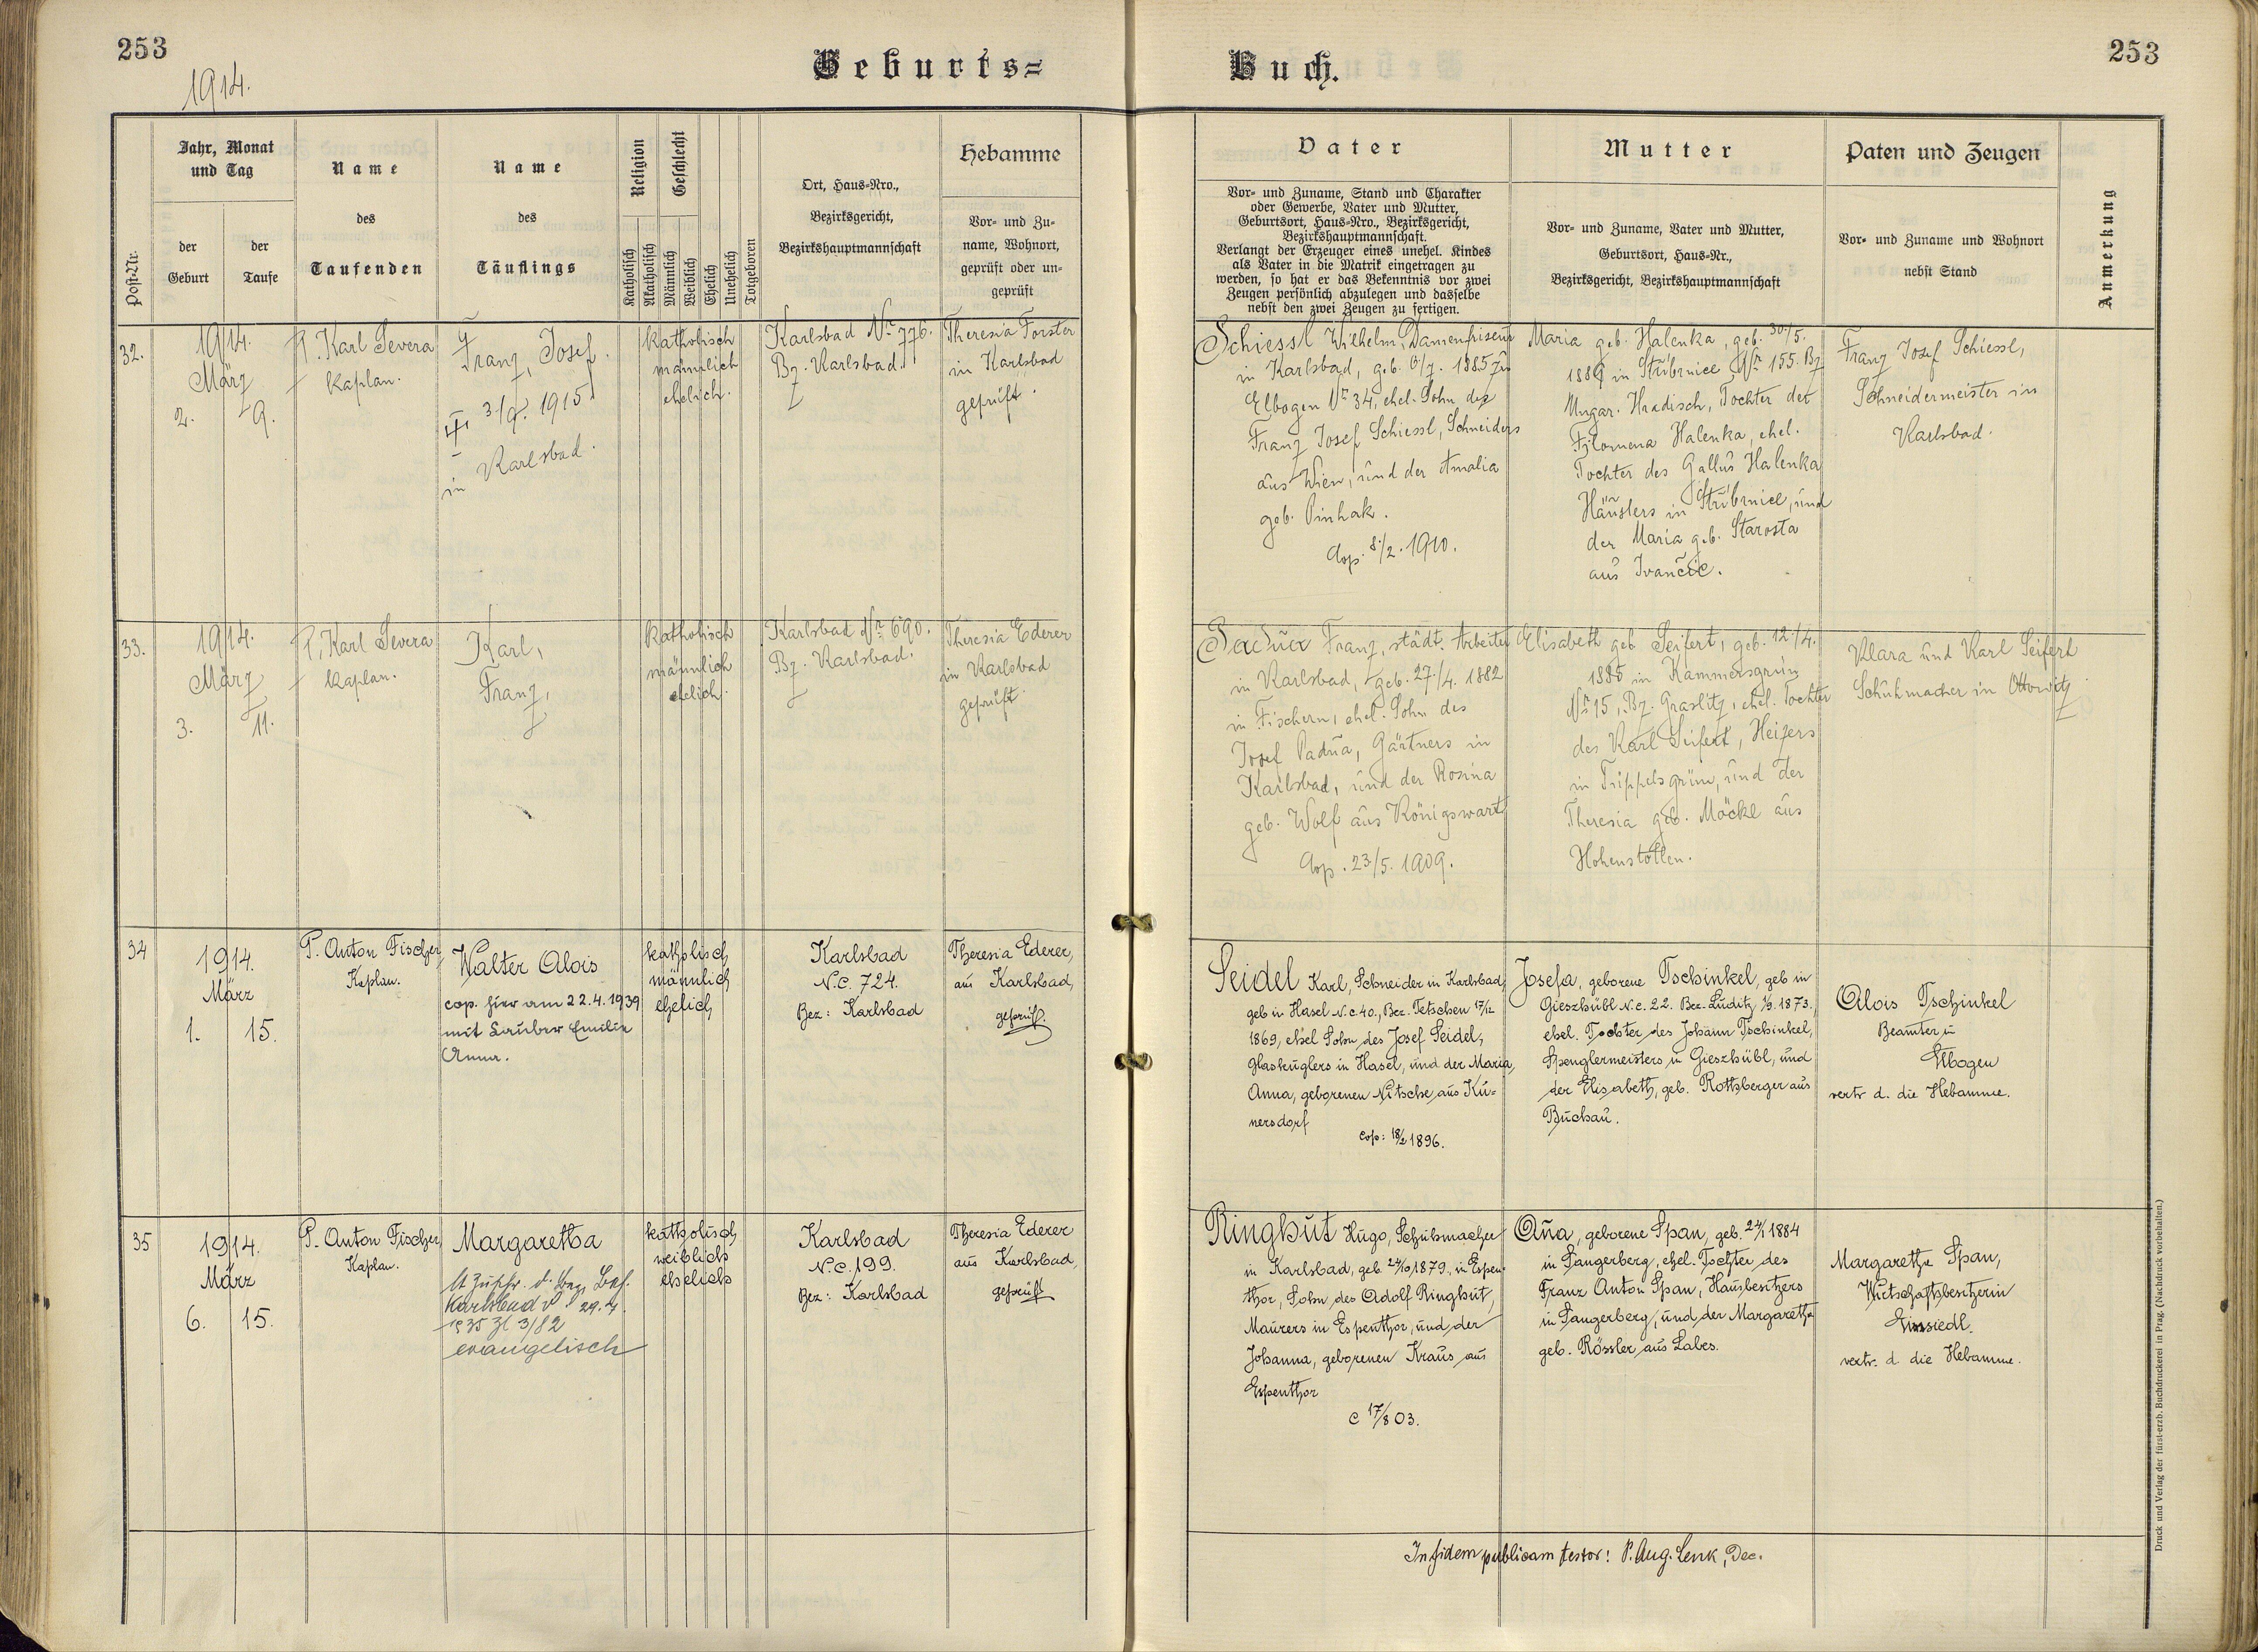 253
1914.
Geburts=
Buch.
253
Post-Nr.
Jahr, Monat
und Tag
der
Geburt
der
Taufe
Name
des
Taufenden
Name
des
Täuflings
Religion
Katholisch
Akatholisch
Geschlecht
Männlich
Weiblich
Ehelich
Unehelich
Totgeboren
Ort, Haus-Nro.,
Bezirksgericht,
Bezirkshauptmannschaft
Hebamme
Vor- und Zu-
name, Wohnort,
geprüft oder un-
geprüft
Vater
Vor- und Zuname, Stand und Charakter
oder Gewerbe, Vater und Mutter,
Geburtsort, Haus-Nro., Bezirksgericht,
Bezirkshauptmannschaft.
Verlangt der Erzeuger eines unehel. Kindes
als Vater in die Matrik eingetragen zu
werden, so hat er das Bekenntnis vor zwei
Zeugen persönlich abzulegen und dasselbe
nebst den zwei Zeugen zu fertigen.
Mutter
Vor- und Zuname, Vater und Mutter,
Geburtsort, Haus-Nr.,
Bezirksgericht, Bezirkshauptmannschaft
Paten und Zeugen
Vor- und Zuname und Wohnort
nebst Stand
Anmerkung
32.
1914.
März
2. 9.
P. Karl Severa
Kaplan.
Franz, Josef.
3./9. 1915
in Karlsbad.
katholisch
männlich
ehelich.
Karlsbad Nr 776.
Bz. Karlsbad.
Theresia Forster
in Karlsbad
geprüft.
Schiessl Wilhelm, Damenfriseur
in Karlsbad, geb. 6/7. 1885 in
Elbogen Nr 34, ehel. Sohn des
Franz Josef Schiessl, Schneiders
aus Wien, und der Amalia
geb. Pinhak.
Cop. 8./2. 1910.
Maria geb. Halenka, geb. 30./5.
1889 in Stříbrnice Nr 155. Bz
Ungar. Hradisch, Tochter der
Filomena Halenka, ehel.
Tochter des Gallus Halenka
Häuslers in Stříbrnice, und
der Maria geb. Starosta
aus Ivančic.
Franz Josef Schiessl,
Schneidermeister in
Karlsbad.
33.
1914.
März
3. 11.
P. Karl Severa
Kaplan.
Karl,
Franz,
katholisch
männlich
ehelich.
Karlsbad Nr 690.
Bz. Karlsbad.
Theresia Ederer
in Karlsbad
geprüft.
Franz, städt. Arbeiter
in Karlsbad, geb. 27./4. 1882
in Fischern, ehel. Sohn des
Josef Padua, Gärtners in
Karlsbad, und der Rosina
geb. Wolf aus Königswart
Cop. 23/5. 1909.
Elisabeth geb. Seifert, geb. 12./4.
in Kammersgrün
Nr 15, Bz. Graslitz, ehel. Tochter
des Karl Seifert, Heizers
in Trippelsgrün, und der
Theresia geb. Möckl aus
Hohenstollen.
Klara und Karl Seifert
Schuhmacher in Ottowitz
34
1914.
März
1. 15.
P. Anton Fischer,
Kaplan.
Walter Alois
cop. hier am 22.4.1939
mit Emilie
Anna.
katholisch
männlich
ehelich
Karlsbad
N.C. 724.
Bez: Karlsbad
Theresia Ederer,
aus Karlsbad,
geprüft.
Seidel Karl, Schneider in Karlsbad,
geb in Hasel N.C. 40., Bez. Tetschen 17/12
1869, ehel Sohn des Josef Seidel,
Glaskuglers in Hasel, und der Maria,
Anna, geborenen Nitsche aus Ku=
nersdorf
Cop: 18/2 1896.
Josefa, geborene Tschinkel, geb in
Gieszhübl N.C. 22. Bez. Luditz, 1/9. 1873.,
ehel. Tochter des Johann Tschinkel,
Spenglermeisters in Gieszhübl, und
der Elisabeth, geb. Rottberger aus
Buchau.
Alois Tschinkel
Beamter in
Elbogen
vertr d. die Hebamme.
35
1914.
März
6. 15.
P. Anton Fischer,
Kaplan.
Margaretha
lt Zuschr. d. Bez. Beh.
Karlsbad v 29.4.
1935 Zl 3/82
evangelisch
katholisch
weiblich
ehelich
Karlsbad
N.C. 199.
Bez: Karlsbad
Theresia Ederer
aus Karlsbad,
geprüft
Ringhut Hugo, Schuhmacher
in Karlsbad, geb. 24/10 1879., in Espen-
thor, Sohn des Adolf Ringhut,
Maurers in Espenthor, und der
Johanna, geborenen Kraus aus
Espenthor
C 17/8 03.
Aña, geborene Span, geb. 24/1 1884
in Sangerberg, ehel. Tochter des
Franz Anton Span, Hausbesitzers
in Sangerberg, und der Margaretha
geb. Rössler aus Labes.
Margaretha Span,
Wirtschaftsbesitzerin
Einsiedl.
vertr. d die Hebamme.
In fidem publicam testor! P. Aug. Lenk, Dec.
Druck und Verlag der fürst-erzb. Buchdruckerei in Prag. (Nachdruck vorbehalten.)